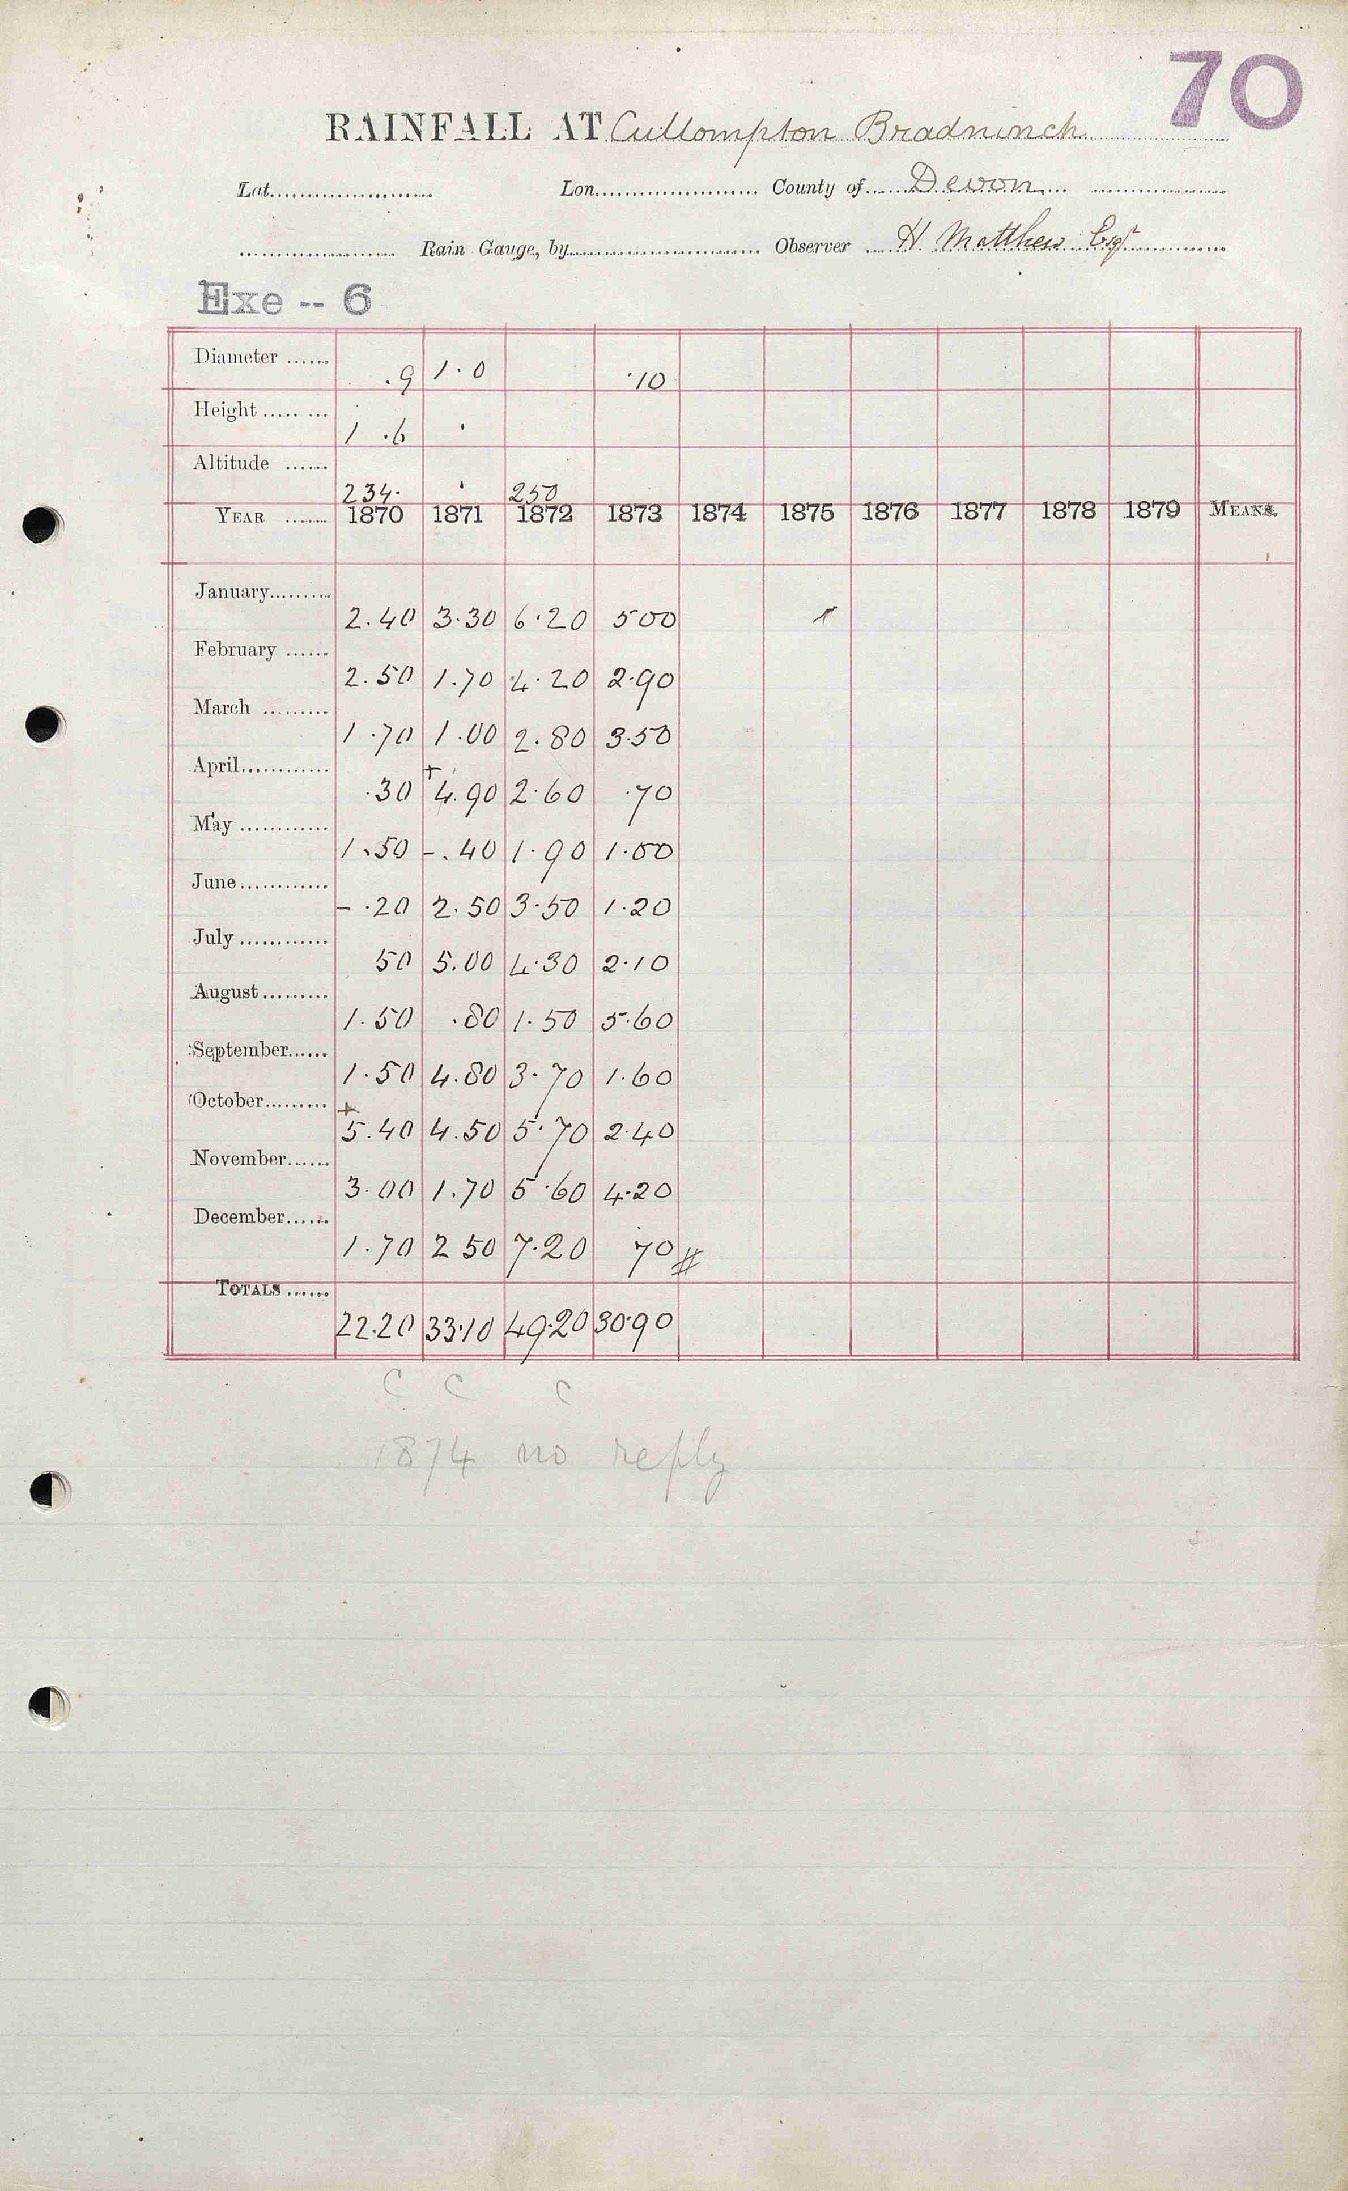 70
RAINFALL AT Cullompton Bradninch
Lat. Lon. County of Devon
Rain Gauge, by Observer H Matthew Esqr
Exe -- 6
Diameter .9 1.0 .10
Height 1 .6
Altitude 234. 250
YEAR 1870 1871 1872 1873 1874 1875 1876 1877 1878 1879 MEANS.
January 2.40 3.30 6.20 500
February 2.50 1.70 4.20 2.90
March 1.70 1.00 2.80 3.50
April .30 +4.90 2.60 .70
May 1.50 -.40 1.90 1.00
June - .20 2.50 3.50 1.20
July 50 5.00 4.30 2.10
August 1.50 .80 1.50 5.60
September 1.50 4.80 3.70 1.60
October +5.40 4.50 5.70 2.40
November 3.00 1.70 5.60 4.20
December 1.70 2 50 7.20 70 #
TOTALS 22.20 33.10 49.20 30.90
C C C
1874 no reply